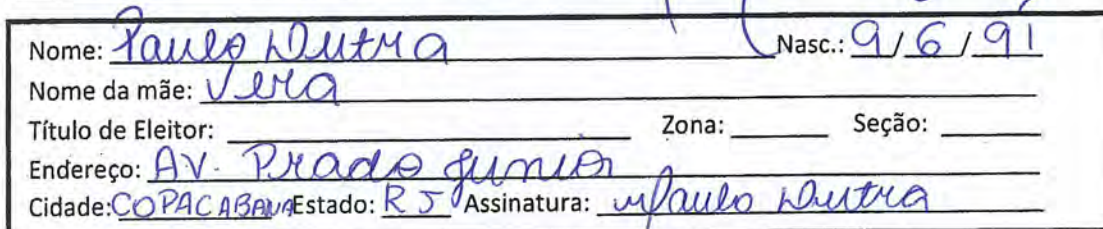 Nome: Paulo Dutra Nasc.: 9/6/91
Nome da mãe: Vera
Título de Eleitor: Zona: Seção:
Endereço: AV. Prado Junior
Cidade: COPACABANA Estado: RJ Assinatura: Paulo Dutra